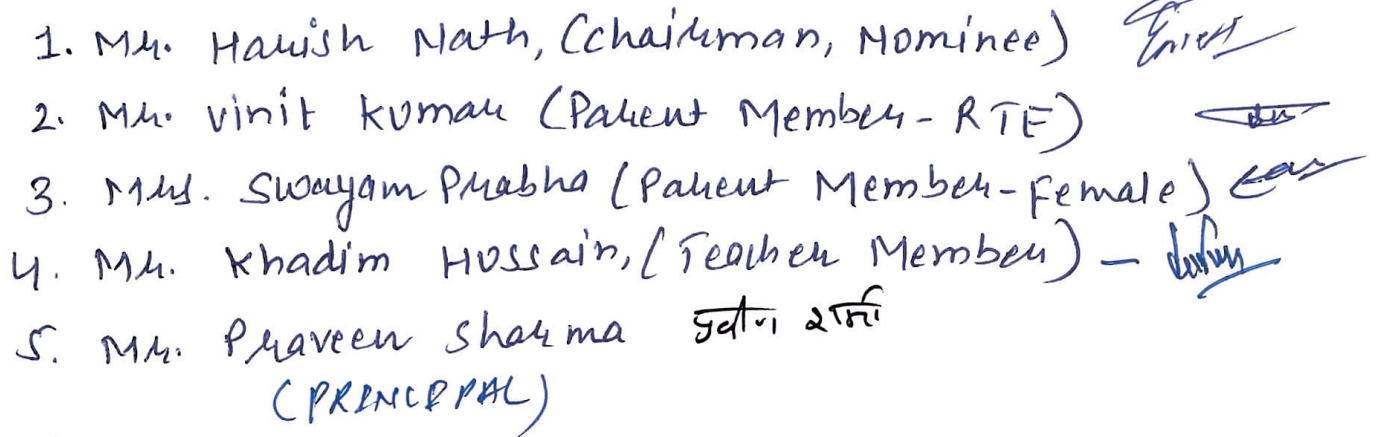 1. Mr. Harish Nath, (chairman, Nominee)
2. Mr. vinit kumar (Parent Member - RTE)
3. Mrs. Swayam Prabha (Parent Member - Female)
4. Mr. Khadim Hossain, (Teacher Member) -
5. Mr. Praveen Sharma प्रवीण शर्मा
(PRINCIPAL)